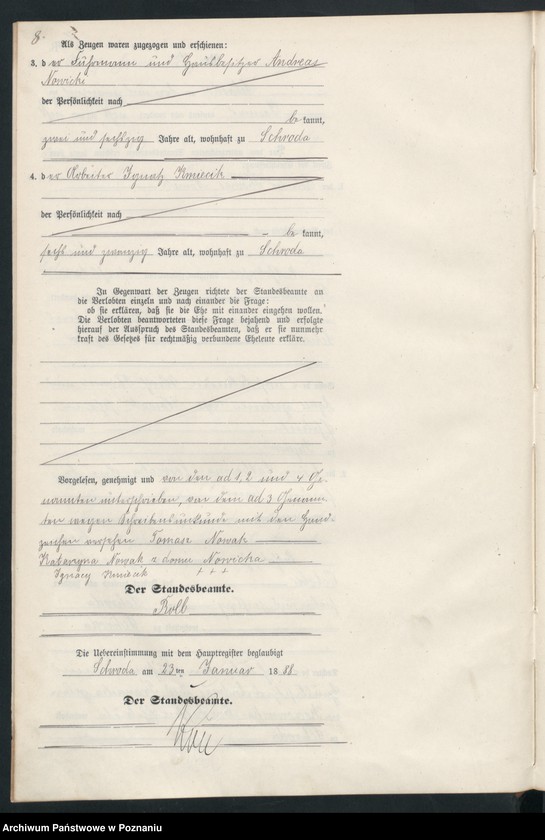 8.
Als Zeugen waren zugezogen und erschienen:
3. der Fuhrmann und Hausbesitzer Andreas
Nowicki
der Persönlichkeit nach
be kannt,
zwei und sechszig Jahre alt, wohnhaft zu Schroda
4. der Arbeiter Ignatz Kmiecik
der Persönlichkeit nach
be kannt,
sechs und zwanzig Jahre alt, wohnhaft zu Schroda
In Gegenwart der Zeugen richtete der Standesbeamte an
die Verlobten einzeln und nach einander die Frage:
ob sie erklären, daß sie die Ehe mit einander eingehen wollen.
Die Verlobten beantworteten diese Frage bejahend und erfolgte
hierauf der Ausspruch des Standesbeamten, daß er sie nunmehr
kraft des Gesetzes für rechtmäßig verbundene Eheleute erkläre.
Vorgelesen, genehmigt und von den ad 1, 2 und 4 Ge-
nannten unterschrieben, von dem ad 3 Genann-
ten wegen Schreibensunkunde mit den Hand-
zeichen versehen Tomasz Nowak
Katarzyna Nowak z domu Nowicka
Ignacy Kmiecik + + +
Der Standesbeamte.
Roll
Die Uebereinstimmung mit dem Hauptregister beglaubigt
Schroda am 23ten Januar 1888
Der Standesbeamte.
Archiwum Państwowe w Poznaniu